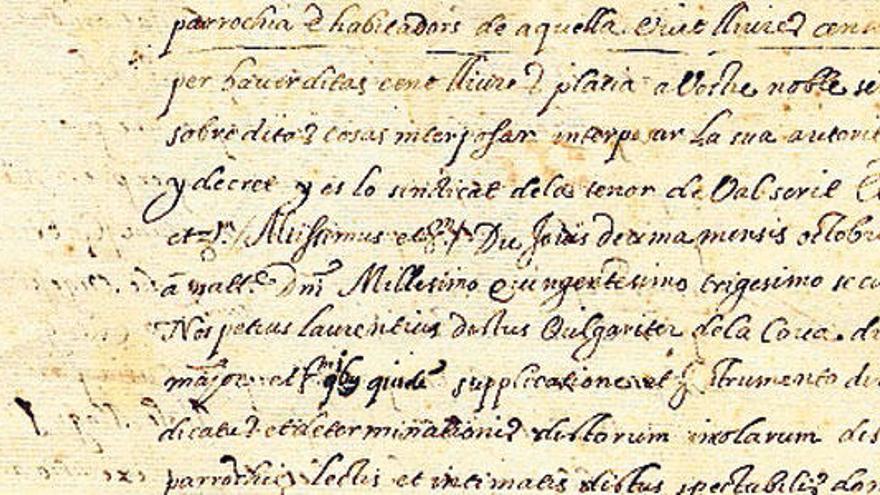 parrochia e habitadors de aquella. Vint lliures cens
per haver ditas cent lliures placia a Vostre noble se
sobreditas cosas interposar interposar La sua autorit
y decret y es lo sindicat de las tenor de Val scrit
et Altissimus et Die Jovis decima mensis octobr
à natt.e Dni Millesimo Quingentesimo trigesimo secu
Nos petrus laurentius dictus Vulgariter de la Cova. d
supplicatione et strumento di
dicatus et determinationis dictorum
parrochie lectis et intimatis dictus spectabilis don